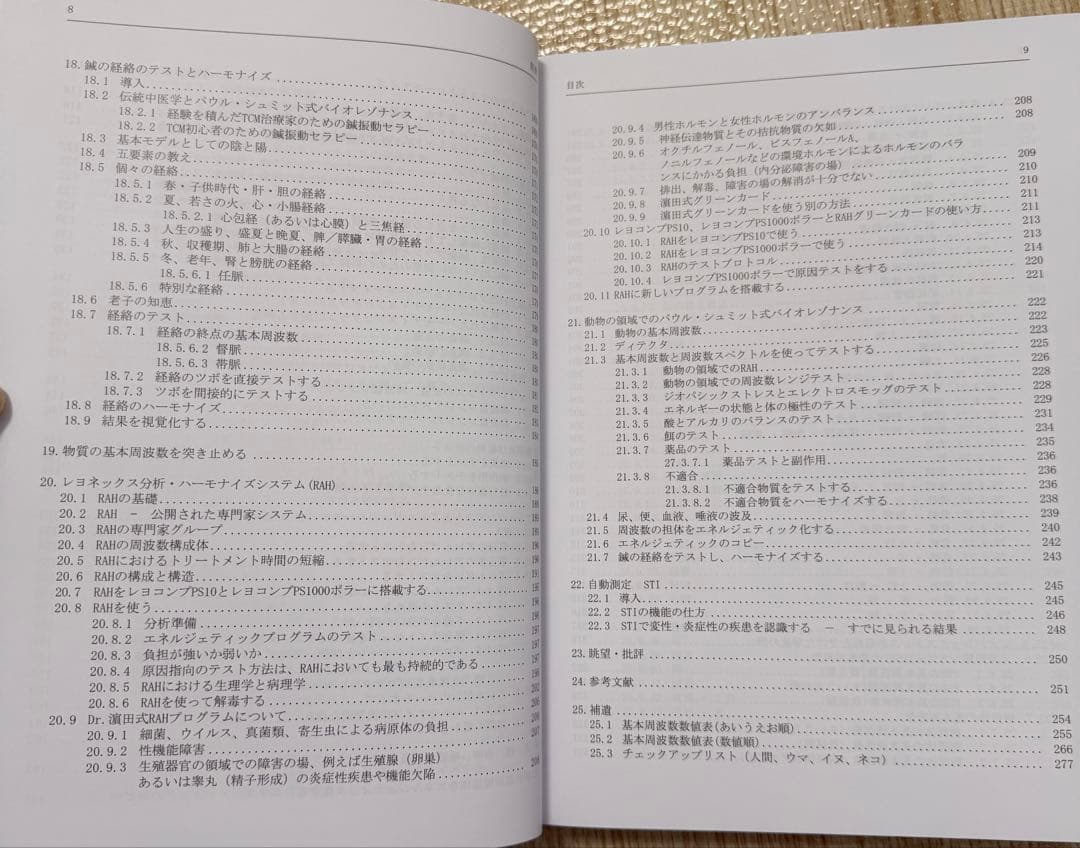 8
18. 鍼の経絡のテストとハーモナイズ
18.1 導入
18.2 伝統中医学とパウル・シュミット式バイオレゾナンス
18.2.1 経験を積んだTCM治療家のための鍼振動セラピー
18.2.2 TCM初心者のための鍼振動セラピー
18.3 基本モデルとしての陰と陽
18.4 五要素の教え
18.5 個々の経絡
18.5.1 春・子供時代・肝・胆の経絡
18.5.2 夏、若さの火、心・小腸経絡
18.5.2.1 心包経(あるいは心膜)と三焦経
18.5.3 人生の盛り、盛夏と晩夏、脾/膵臓・胃の経絡
18.5.4 秋、収穫期、肺と大腸の経絡
18.5.5 冬、老年、腎と膀胱の経絡
18.5.6.1 任脈
18.5.6 特別な経絡
18.6 老子の知恵
18.7 経絡のテスト
18.7.1 経絡の終点の基本周波数
18.5.6.2 督脈
18.5.6.3 帯脈
18.7.2 経絡のツボを直接テストする
18.7.3 ツボを間接的にテストする
18.8 経絡のハーモナイズ
18.9 結果を視覚化する
19. 物質の基本周波数を突き止める
20. レヨネックス分析・ハーモナイズシステム(RAH)
20.1 RAHの基礎
20.2 RAH － 公開された専門家システム
20.3 RAHの専門家グループ
20.4 RAHの周波数構成体
20.5 RAHにおけるトリートメント時間の短縮
20.6 RAHの構成と構造
20.7 RAHをレヨコンプPS10とレヨコンプPS1000ポラーに搭載する
20.8 RAHを使う
20.8.1 分析準備
20.8.2 エネルジェティックプログラムのテスト
20.8.3 負担が強いか弱いか
20.8.4 原因指向のテスト方法は、RAHにおいても最も持続的である
20.8.5 RAHにおける生理学と病理学
20.8.6 RAHを使って解毒する
20.9 Dr.濵田式RAHプログラムについて
20.9.1 細菌、ウイルス、真菌類、寄生虫による病原体の負担
20.9.2 性機能障害
20.9.3 生殖器官の領域での障害の場、例えば生殖腺(卵巣)
あるいは睾丸(精子形成)の炎症性疾患や機能欠陥
目次 9
20.9.4 男性ホルモンと女性ホルモンのアンバランス 208
20.9.5 神経伝達物質とその拮抗物質の欠如 208
20.9.6 オクチルフェノール、ビスフェノールA、
ノニルフェノールなどの環境ホルモンによるホルモンのバラ
ンスにかかる負担(内分泌障害の場) 209
20.9.7 排出、解毒、障害の場の解消が十分でない 210
20.9.8 濵田式グリーンカード 210
20.9.9 濵田式グリーンカードを使う別の方法 211
20.10 レヨコンプPS10、レヨコンプPS1000ポラーとRAHグリーンカードの使い方 211
20.10.1 RAHをレヨコンプPS10で使う 213
20.10.2 RAHをレヨコンプPS1000ポラーで使う 213
20.10.3 RAHのテストプロトコル 214
20.10.4 レヨコンプPS1000ポラーで原因テストをする 220
20.11 RAHに新しいプログラムを搭載する 221
21. 動物の領域でのパウル・シュミット式バイオレゾナンス 222
21.1 動物の基本周波数 222
21.2 ディテクタ 223
21.3 基本周波数と周波数スペクトルを使ってテストする 225
21.3.1 動物の領域でのRAH 226
21.3.2 動物の領域での周波数レンジテスト 228
21.3.3 ジオパシックストレスとエレクトロスモッグのテスト 228
21.3.4 エネルギーの状態と体の極性のテスト 229
21.3.5 酸とアルカリのバランスのテスト 231
21.3.6 餌のテスト 234
21.3.7 薬品のテスト 235
27.3.7.1 薬品テストと副作用 236
21.3.8 不適合 236
21.3.8.1 不適合物質をテストする 236
21.3.8.2 不適合物質をハーモナイズする 238
21.4 尿、便、血液、唾液の波及 239
21.5 周波数の担体をエネルジェティック化する 240
21.6 エネルジェティックのコピー 242
21.7 鍼の経絡をテストし、ハーモナイズする 243
22. 自動測定 STI 245
22.1 導入 245
22.2 STIの機能の仕方 246
22.3 STIで変性・炎症性の疾患を認識する － すでに見られる結果 248
23. 眺望・批評 250
24. 参考文献 251
25. 補遺 254
25.1 基本周波数数値表(あいうえお順) 255
25.2 基本周波数数値表(数値順) 266
25.3 チェックアップリスト(人間、ウマ、イヌ、ネコ) 277